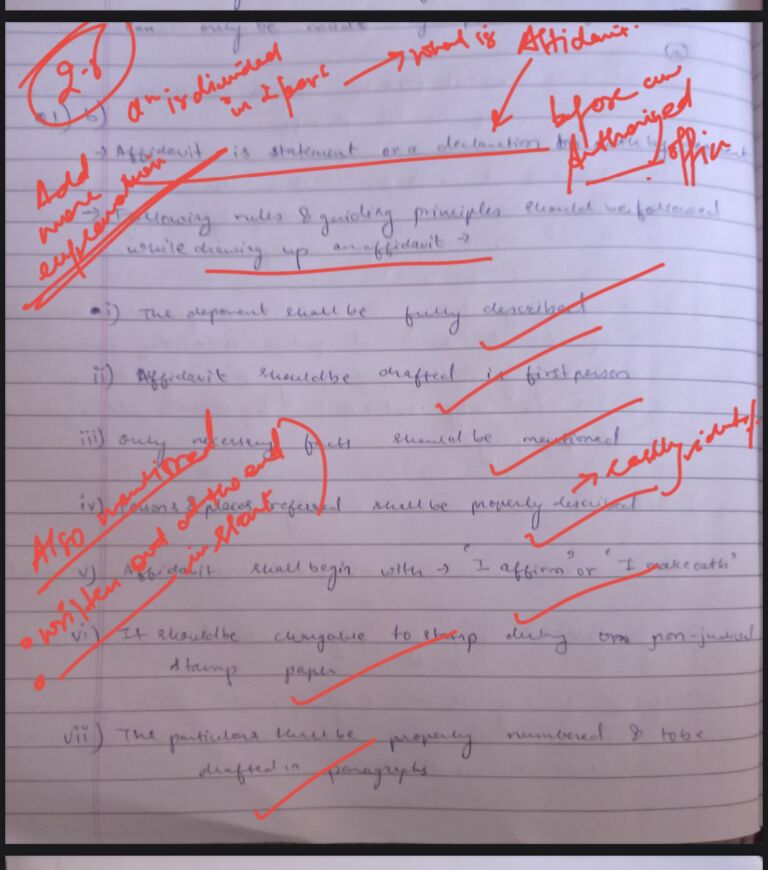 only be made
2.8
Qn is divided in 2 parts → what is Affidavit.
b)
before an Authorised offic
→ Affidavit is statement or a declaration
Add more explanation
→ Following rules & guiding principles should be followed
while drawing up an affidavit →
i) The deponent shall be fully described
ii) Affidavit should be drafted in first person
iii) Only necessary facts should be mentioned
→ easily
iv) Persons & places referred shall be properly described
Also mentioned
• written out at the end
• in start
v) Affidavit shall begin with → "I affirm" or "I make oath"
vi) It should be chargable to stamp duty on non-judicial
stamp paper
vii) The particulars shall be properly numbered & to be
drafted in paragraphs